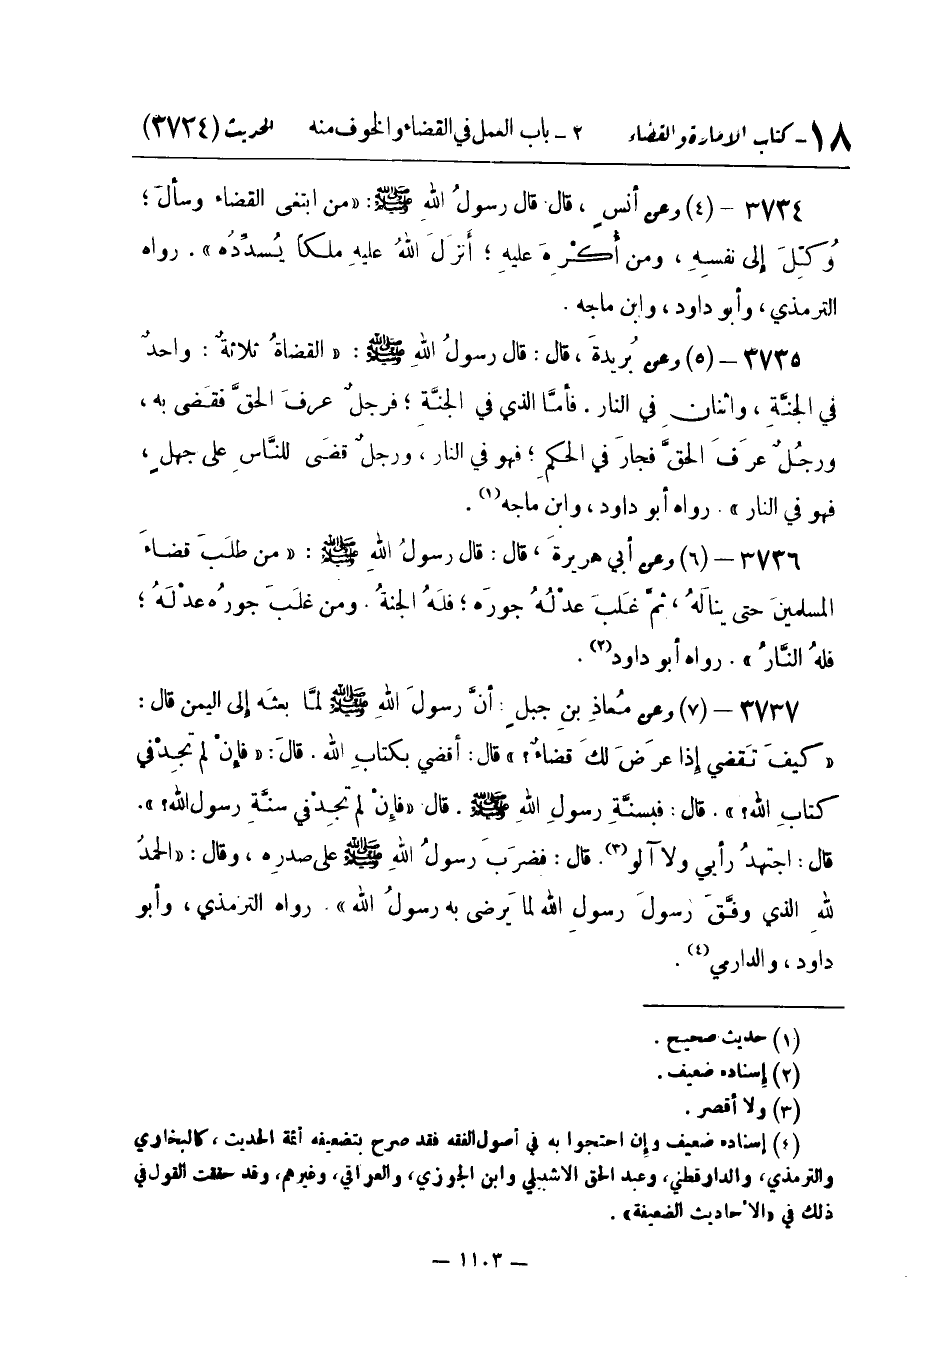 ١٨- كتاب الامارة والقضاء ٢ - باب العمل في القضاء والخوف منه الحديث (٣٧٣٤)
٣٧٣٤ - (٤) وعن أنسٍ ، قال قال رسولُ اللهِ ﷺ: «من ابتغى القضاء وسألَ ؛
وُكِّلَ إلى نفسِهِ ، ومن أُكْرِهَ عليهِ ؛ أَنزَلَ اللهُ عليهِ ملكاً يُسدِّدُه » . رواه
الترمذي ، وأبو داود ، وابن ماجه .
٣٧٣٥ - (٥) وعن بُريدةَ ، قال : قال رسولُ اللهِ ﷺ : « القضاةُ ثلاثةٌ : واحدٌ
في الجنَّةِ ، واثنان في النار . فأمَّا الذي في الجنَّة ؛ فرجلٌ عرفَ الحقَّ فقضى به ،
ورجُلٌ عرَفَ الحقَّ فجارَ في الحكمِ ؛ فهو في النار ، ورجلٌ قضَى للنَّاسِ على جهلٍ ،
فهو في النار » . رواه أبو داود ، وابن ماجه(١) .
٣٧٣٦ - (٦) وعن أبي هريرةَ ، قال : قال رسولُ اللهِ ﷺ : « من طلَبَ قضاءَ
المسلمينَ حتى ينالَهُ ، ثمَّ غلَبَ عدْلُهُ جورَه ؛ فلَهُ الجنةُ . ومن غلَبَ جورُه عدْلَهُ ؛
فلهُ النَّارُ » . رواه أبو داود(٢) .
٣٧٣٧ - (٧) وعن مُعاذِ بنِ جبلٍ : أنَّ رسولَ اللهِ ﷺ لمَّا بعثَه إلى اليمن قال :
« كيفَ تَقضي إذا عرَضَ لكَ قضاءٌ؟ » قال : أقضي بكتابِ الله . قالَ : « فإنْ لم تجدْ في
كتابِ الله؟ » . قال : فبسنَّةِ رسولِ اللهِ ﷺ . قال «فإنْ لم تجدْ في سنَّةِ رسول الله؟ ».
قال : اجتهدُ رأيي ولا آلو(٣). قال : فضرَبَ رسولُ اللهِ ﷺ على صدرِه ، وقال : «الحمدُ
للهِ الذي وفَّقَ رسولَ رسولِ الله لما يَرضى به رسولُ الله » . رواه الترمذي ، وأبو
داود ، والدارمي(٤) .
(١) حديث صحيح .
(٢) إسناده ضعيف .
(٣) ولا أقصر .
(٤) إسناده ضعيف وإن احتجوا به في أصول الفقه فقد صرح بتضعيفه أئمة الحديث ، كالبخاري
والترمذي ، والدارقطني ، وعبد الحق الاشبيلي وابن الجوزي ، والعراقي ، وغيرهم ، وقد حققت القول في
ذلك في «الأحاديث الضعيفة» .
– ١١٠٣ –